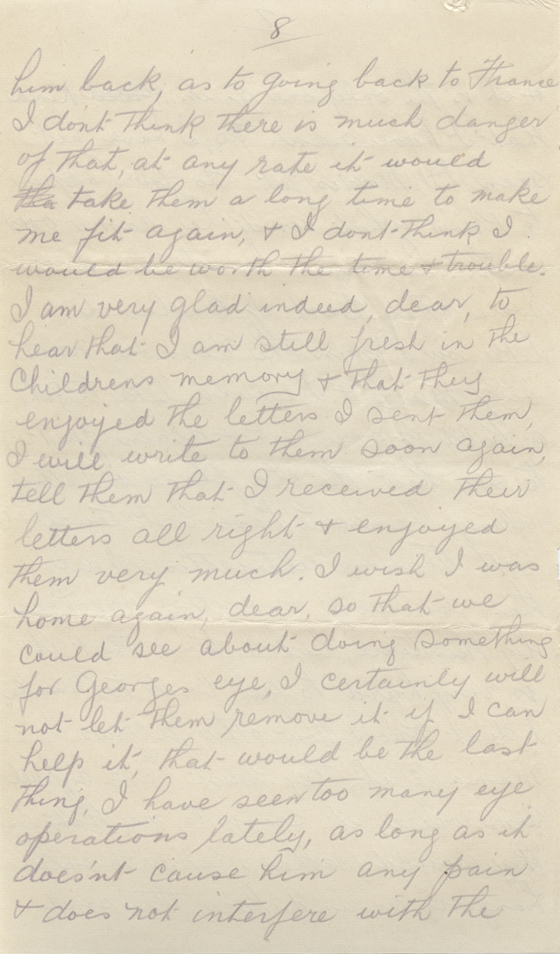 8
him back, as to going back to France
I dont think there is much danger
of that, at any rate it would
tha take them a long time to make
me fit again, & I dont think I
would be worth the time & trouble.
I am very glad indeed, dear, to
hear that I am still fresh in the
Childrens memory & that they
enjoyed the letters I sent them,
I will write to them soon again,
tell them that I received their
letters all right & enjoyed
them very much. I wish I was
home again, dear, so that we
could see about doing something
for Georges eye, I certainly will
not let them remove it if I can
help it, that would be the last
thing, I have seen too many eye
operations lately, as long as it
does'nt cause him any pain
& does not interfere with the